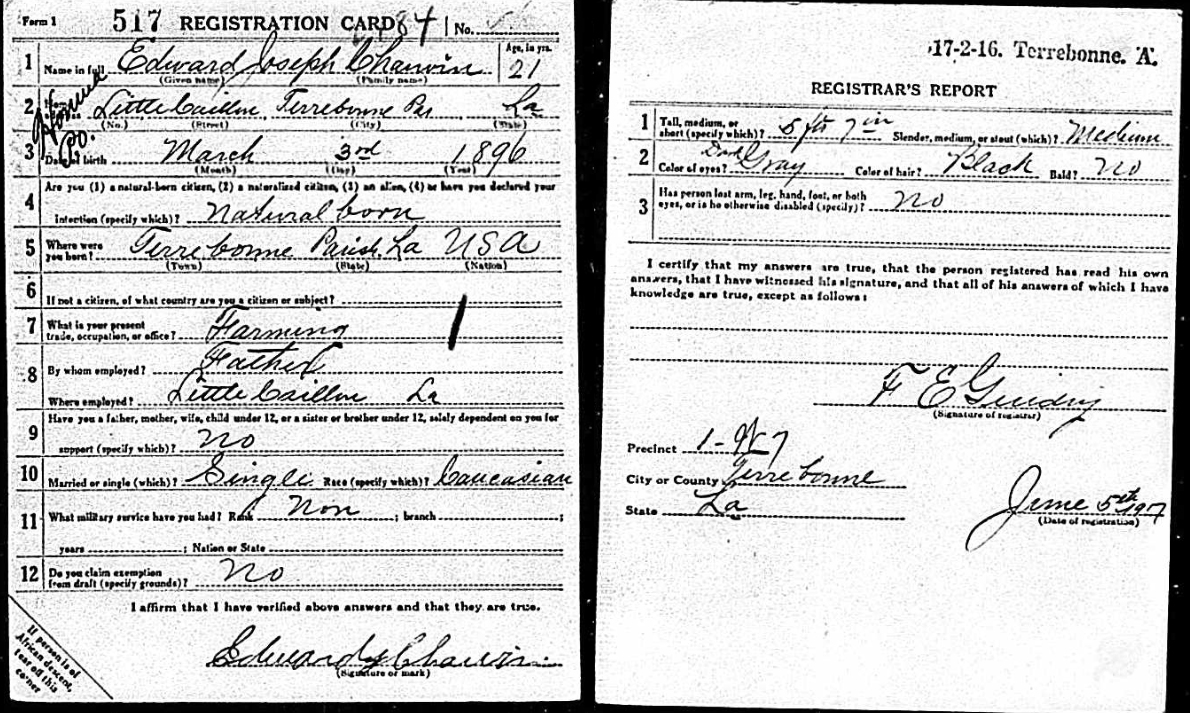 Form 1 517 REGISTRATION CARD 84 No.
1 Name in full Edward Joseph Chauvin Age, in yrs. 21
(Given name) (Family name)
2 Home address Little Caillou Terrebonne Par La
(No.) (Street) (City) (State)
Houma Po.
3 Date of birth March 3rd 1896
(Month) (Day) (Year)
4 Are you (1) a natural-born citizen, (2) a naturalized citizen, (3) an alien, (4) or have you declared your
intention (specify which)? Natural born
5 Where were you born? Terrebonne Parish La USA
(Town) (State) (Nation)
6 If not a citizen, of what country are you a citizen or subject?
7 What is your present trade, occupation, or office? Farming
8 By whom employed? Father
Where employed? Little Caillou La
9 Have you a father, mother, wife, child under 12, or a sister or brother under 12, solely dependent on you for
support (specify which)? No
10 Married or single (which)? Single Race (specify which)? Caucasian
11 What military service have you had? Rank Non ; branch ;
years ; Nation or State
12 Do you claim exemption from draft (specify grounds)? No
I affirm that I have verified above answers and that they are true.
Edward J Chauvin
(Signature or mark)
If person is of
African descent,
tear off this
corner
17-2-16. Terrebonne. A.
REGISTRAR'S REPORT
1 Tall, medium, or short (specify which)? 5 fts 7 in Slender, medium, or stout (which)? Medium
2 Color of eyes? Dark Gray Color of hair? Black Bald? No
3 Has person lost arm, leg, hand, foot, or both
eyes, or is he otherwise disabled (specify)? No
I certify that my answers are true, that the person registered has read his own
answers, that I have witnessed his signature, and that all of his answers of which I have
knowledge are true, except as follows:
F E Guidry
(Signature of registrar)
Precinct 1-W 7
City or County Terrebonne
State La
June 5th 1917
(Date of registration)